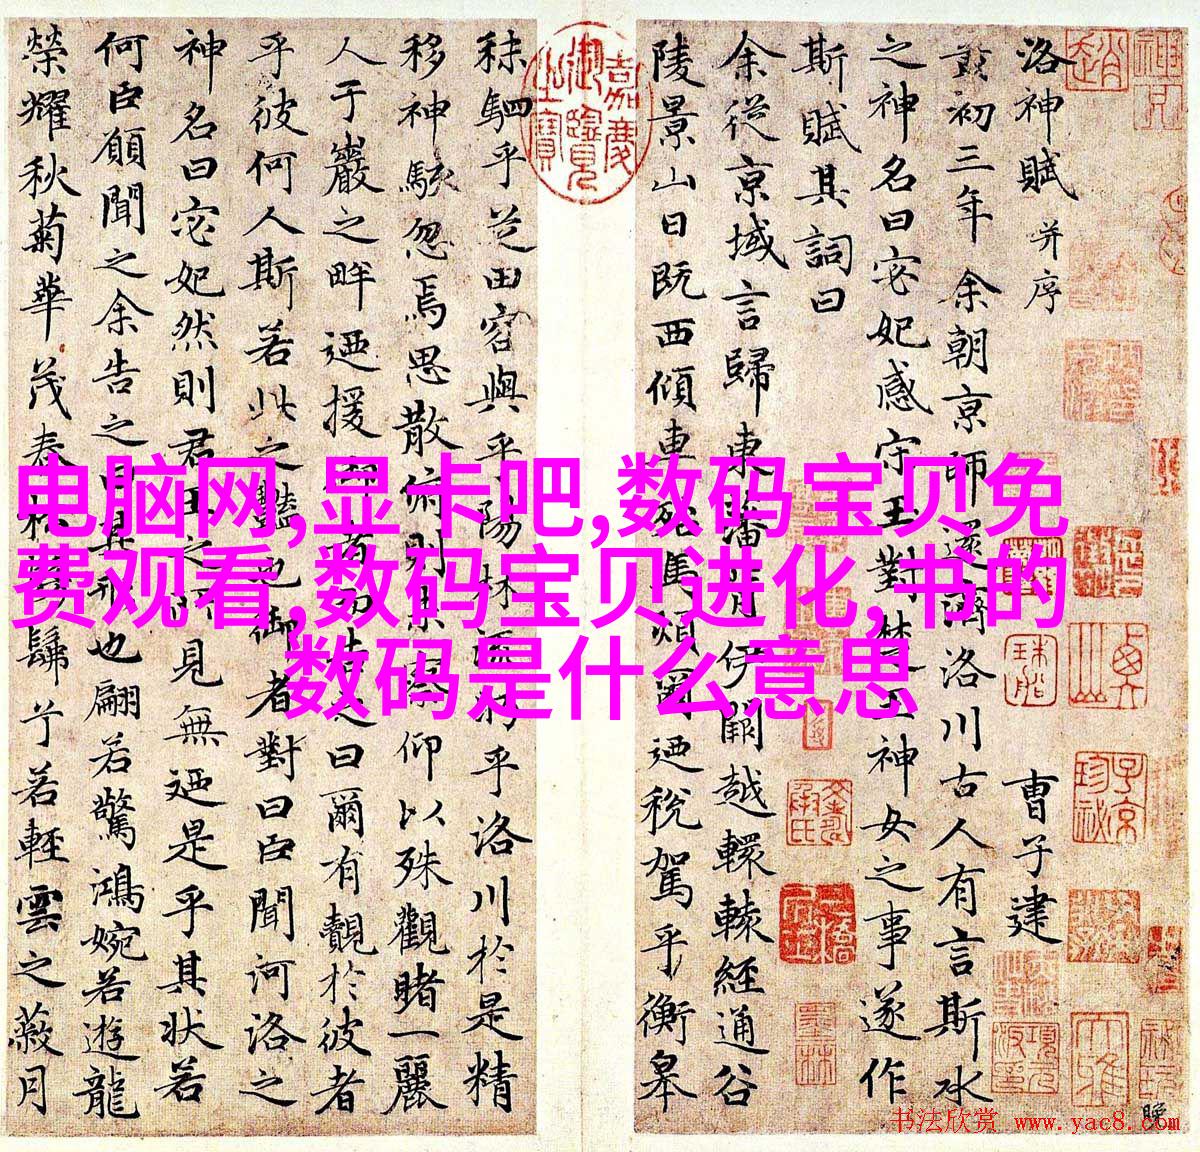 洛神賦 并序 曹子建
黃初三年余朝京師還濟洛川古人有言斯水
之神名曰宓妃感宋玉對楚王神女之事遂作
斯賦其詞曰
余從京域言歸東藩背伊闕越轘轅經通谷
陵景山日既西傾車殆馬煩爾迺稅駕乎蘅皋
秣駟乎芝田容與乎陽林流眄乎洛川於是精
移神駭忽焉思散俯則未察仰以殊觀睹一麗
人于巖之畔迺援御者而告之曰爾有覿於彼者
乎彼何人斯若此之豔也御者對曰臣聞河洛之
神名曰宓妃然則君王之所見無迺是乎其狀若
何臣願聞之余告之曰其形也翩若驚鴻婉若遊龍
榮耀秋菊華茂春松髣髴兮若輕雲之蔽月
嘉慶御覽之寶
电脑网,显卡吧,数码宝贝免
费观看,数码宝贝进化,书的
数码是什么意思
书法欣赏 www.yac8.com